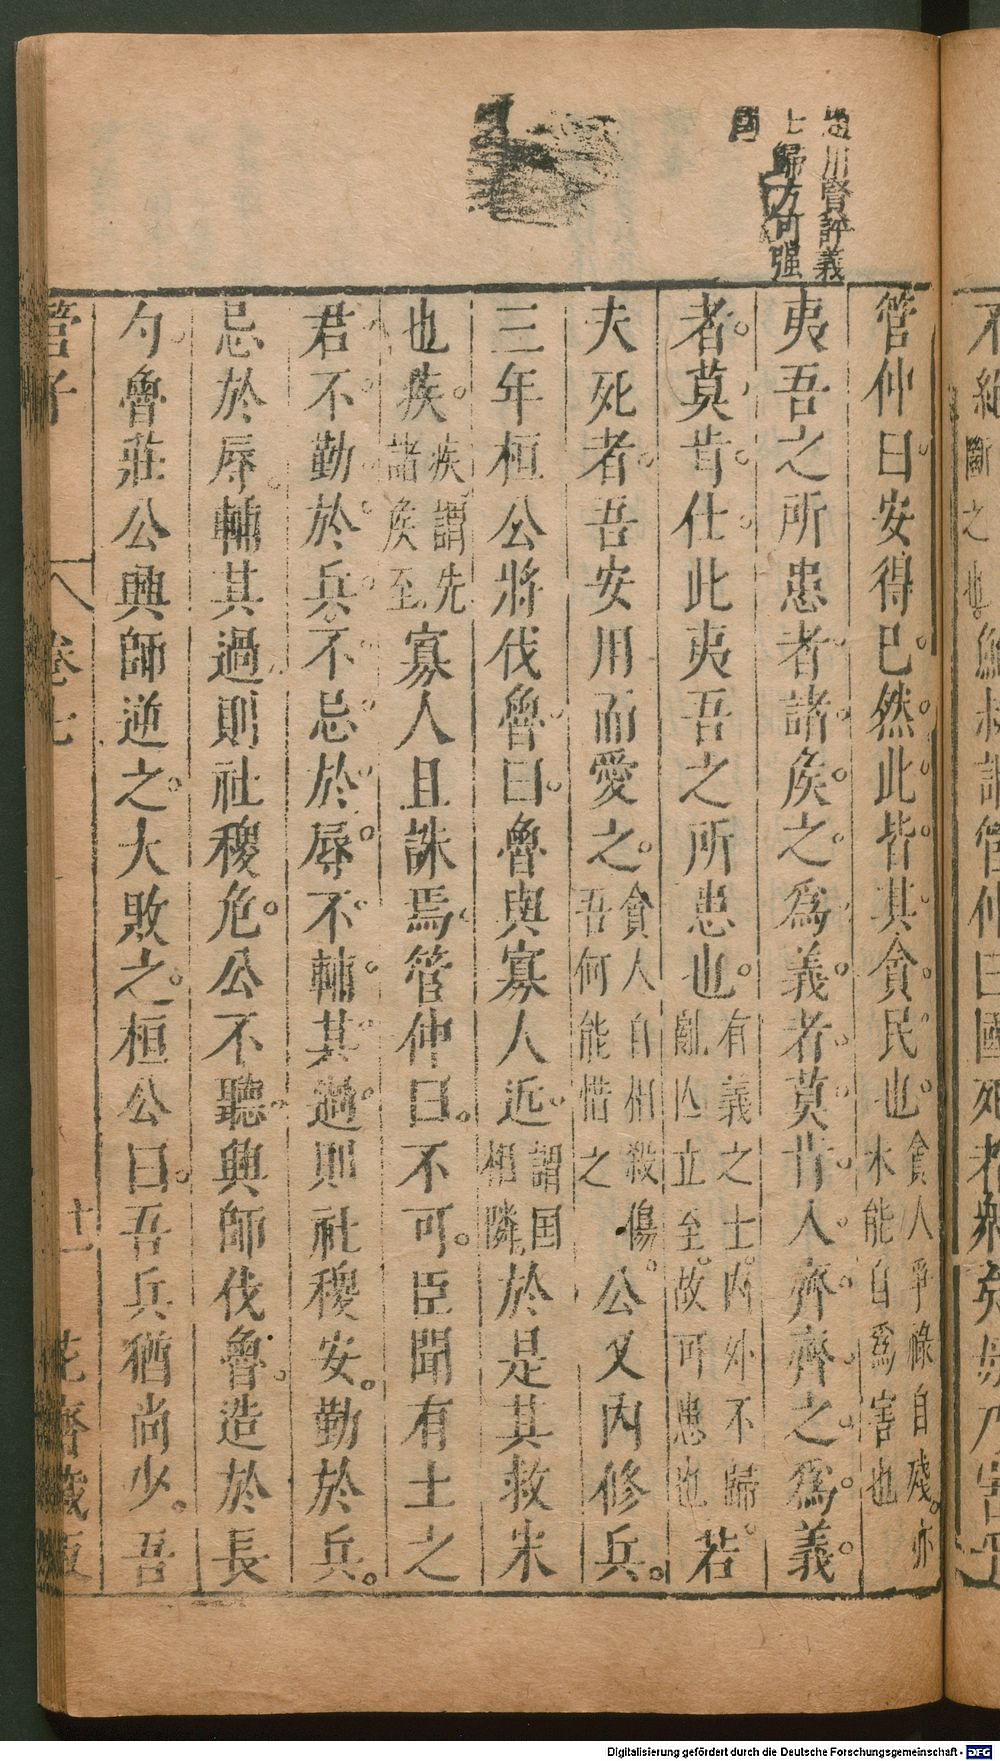 川賢評義
士歸方可强
國
管仲曰安得已然此皆其貪民也貪人爭祿自殘亦未能自爲害也
夷吾之所患者諸侯之爲義者莫肯入齊齊之爲義
者莫肯仕此夷吾之所患也有義之士内外不歸亂亾立至故可患也若
夫死者吾安用而愛之貪人自相殺傷吾何能惜之公又内修兵
三年桓公將伐魯曰魯與寡人近謂国相隣於是其救宋
也疾疾謂先諸侯至寡人且誅焉管仲曰不可臣聞有土之
君不勤於兵不忌於辱不輔其過則社稷安勤於兵
忌於辱輔其過則社稷危公不聽興師伐魯造於長
勺魯莊公興師逆之大敗之桓公曰吾兵猶尚少吾
管子 卷七 十一 花齋藏版
不絕斷之也鮑叔謂管仲曰國死者衆矣毋乃害乎
Digitalisierung gefördert durch die Deutsche Forschungsgemeinschaft - DFG